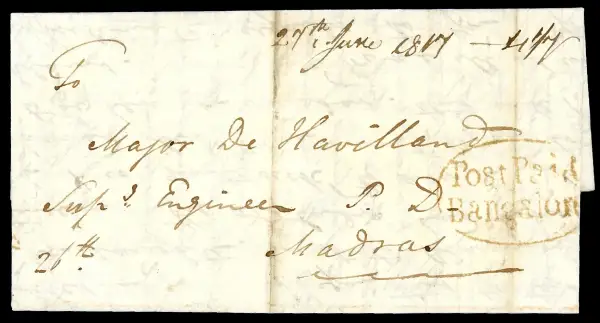 27th June 1817 –
To
Major De Havilland
Post Paid
Bangalore
Supr. Engineer P. D.
26th.
Madras